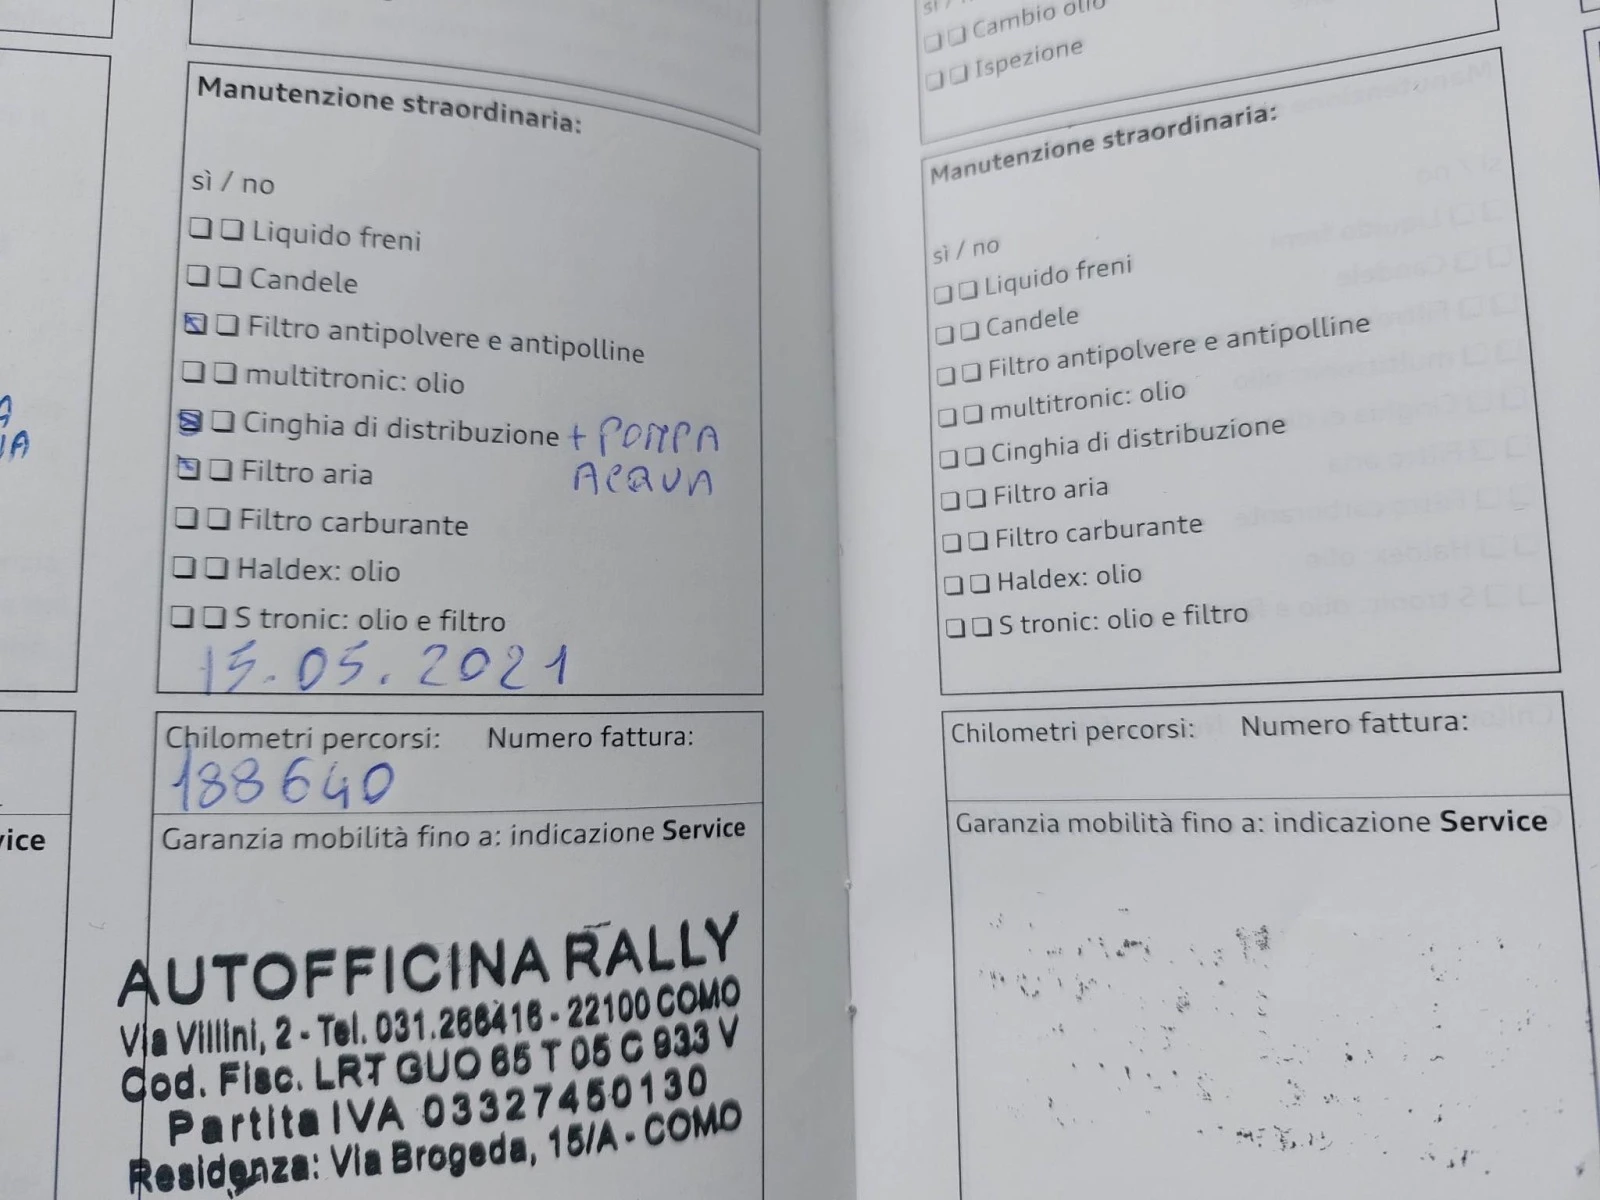 A
IA
vice
Manutenzione straordinaria:
sì / no
Liquido freni
Candele
Filtro antipolvere e antipolline
multitronic: olio
Cinghia di distribuzione + POMPA
Filtro aria ACQUA
Filtro carburante
Haldex: olio
S tronic: olio e filtro
15.05.2021
Chilometri percorsi: Numero fattura:
188640
Garanzia mobilità fino a: indicazione Service
AUTOFFICINA RALLY
Via Villini, 2 - Tel. 031.266416 - 22100 COMO
Cod. Fisc. LRT GUO 65 T 05 C 933 V
Partita IVA 03327450130
Residenza: Via Brogeda, 15/A - COMO
sì /
Cambio olio
Ispezione
Manutenzione straordinaria:
sì / no
Liquido freni
Candele
Filtro antipolvere e antipolline
multitronic: olio
Cinghia di distribuzione
Filtro aria
Filtro carburante
Haldex: olio
S tronic: olio e filtro
Chilometri percorsi: Numero fattura:
Garanzia mobilità fino a: indicazione Service